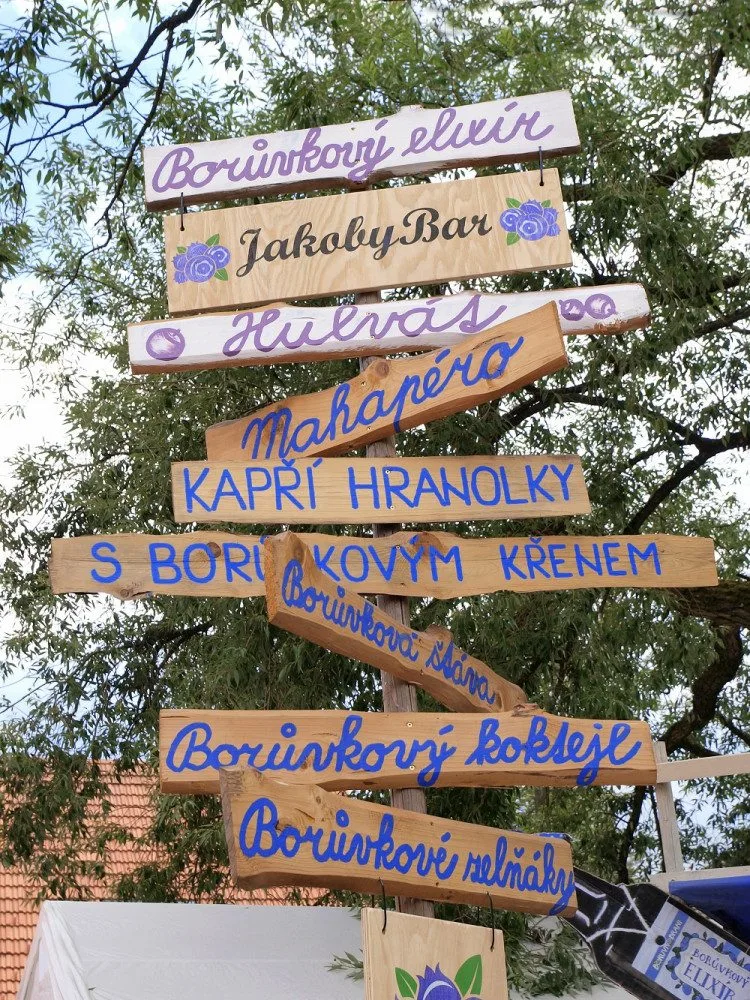 Borůvkový elixír
JakobyBar
Hulvát
Mahapéro
KAPŘÍ HRANOLKY
S BORŮVKOVÝM KŘENEM
Borůvková štáva
Borůvkový koktejl
Borůvkové zelňáky
BORŮVKOVÝ
ELIXÍR